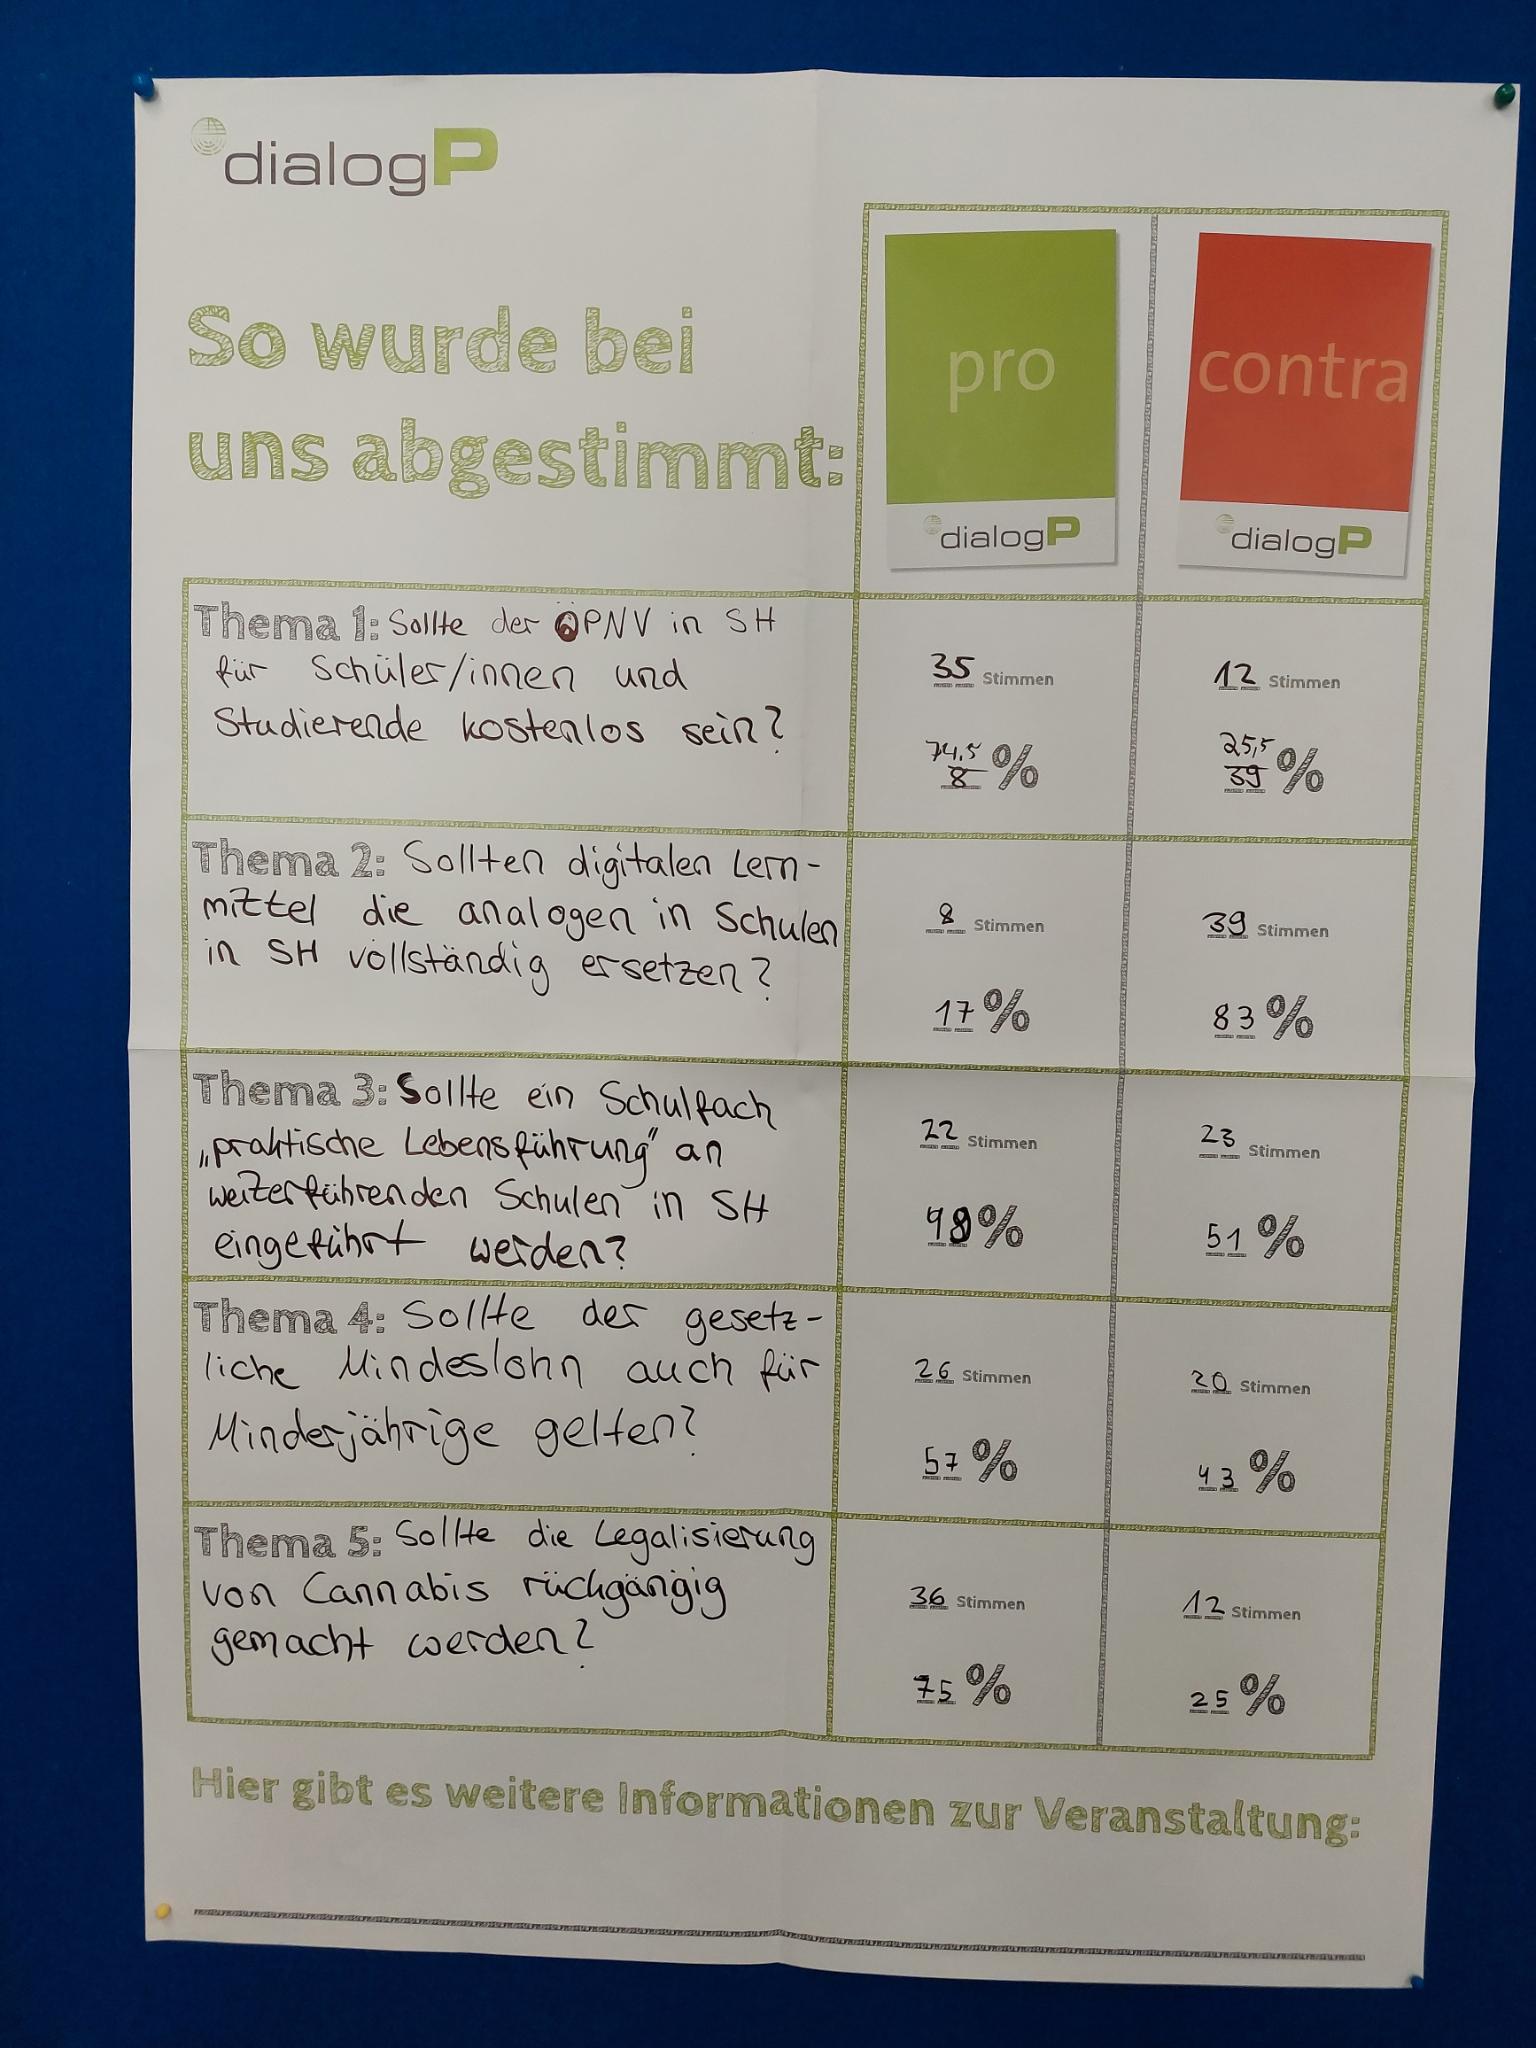 dialogP
So wurde bei
uns abgestimmt:
pro
dialogP
contra
dialogP
Thema 1: Sollte der ÖPNV in SH
für Schüler/innen und
Studierende kostenlos sein?
35 Stimmen
74,5
8 %
12 Stimmen
25,5
39 %
Thema 2: Sollten digitalen Lern-
mittel die analogen in Schulen
in SH vollständig ersetzen?
8 Stimmen
17 %
39 Stimmen
83 %
Thema 3: Sollte ein Schulfach
„praktische Lebensführung" an
weiterführenden Schulen in SH
eingeführt werden?
22 Stimmen
%
23 Stimmen
51 %
Thema 4: Sollte der gesetz-
liche Mindeslohn auch für
Minderjährige gelten?
26 Stimmen
57 %
20 Stimmen
43 %
Thema 5: Sollte die Legalisierung
von Cannabis rückgängig
gemacht werden?
36 Stimmen
75 %
12 Stimmen
25 %
Hier gibt es weitere Informationen zur Veranstaltung: